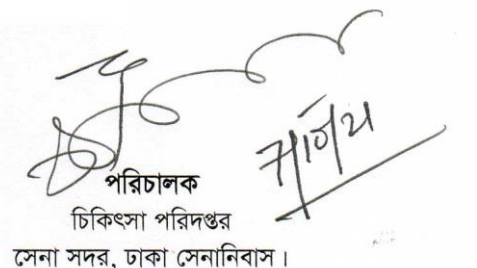 পরিচালক
চিকিৎসা পরিদপ্তর
সেনা সদর, ঢাকা সেনানিবাস।